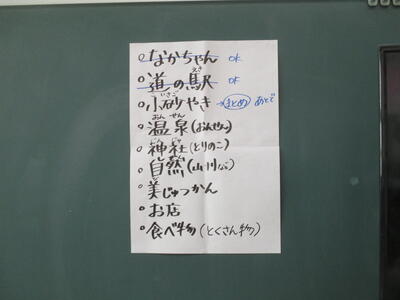 ○なかちゃん OK
○道の駅 OK
えき
○小砂やき →まとめ あとで
いさご
○温泉(おんせん)
おん せん
○神社(とりのこ)
○自然(山川など)
○美じゅつかん
○お店
○食べ物(とくさん物)